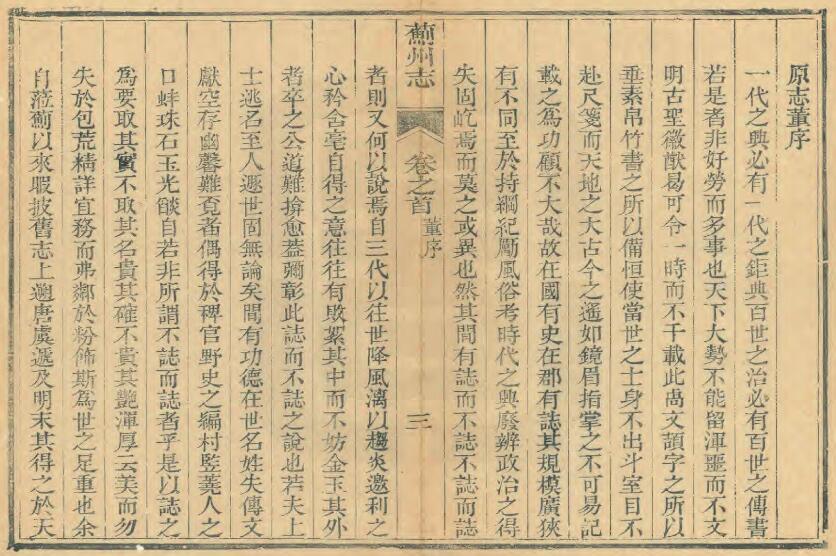 原志董序
一代之興必有一代之鉅典百世之治必有百世之傳書
若是者非好勞而多事也天下大勢不能留渾噩而不文
明古聖徽猷曷可令一時而不千載此卨文頡字之所以
垂素帛竹書之所以備恒使當世之士身不出斗室目不
赴尺箋而天地之大古今之遙如鏡眉指掌之不可易記
載之為功顧不大哉故在國有史在郡有誌其規模廣狹
有不同至於持綱紀勵風俗考時代之興廢辨政治之得
失固屹焉而莫之或異也然其間有誌而不誌不誌而誌
薊州志
卷之首
董序
三
者則又何以說焉自三代以往世降風漓以趨炎邀利之
心矜含毫自得之意往往有敗絮其中而不妨金玉其外
者卒之公道難揜愈葢彌彰此誌而不誌之說也若夫上
士逃名至人遯世固無論矣間有功德在世名姓失傳文
獻空存幽馨難覔者偶得於稗官野史之編村豎蕘人之
口蚌珠石玉光燄自若非所謂不誌而誌者乎是以誌之
為要取其實不取其名貴其確不貴其艷渾厚云美而勿
失於包荒精詳宜務而弗鄰於粉飾斯為世之足重也余
自蒞薊以來暇披舊志上遡唐虞遞及明末其得之於天